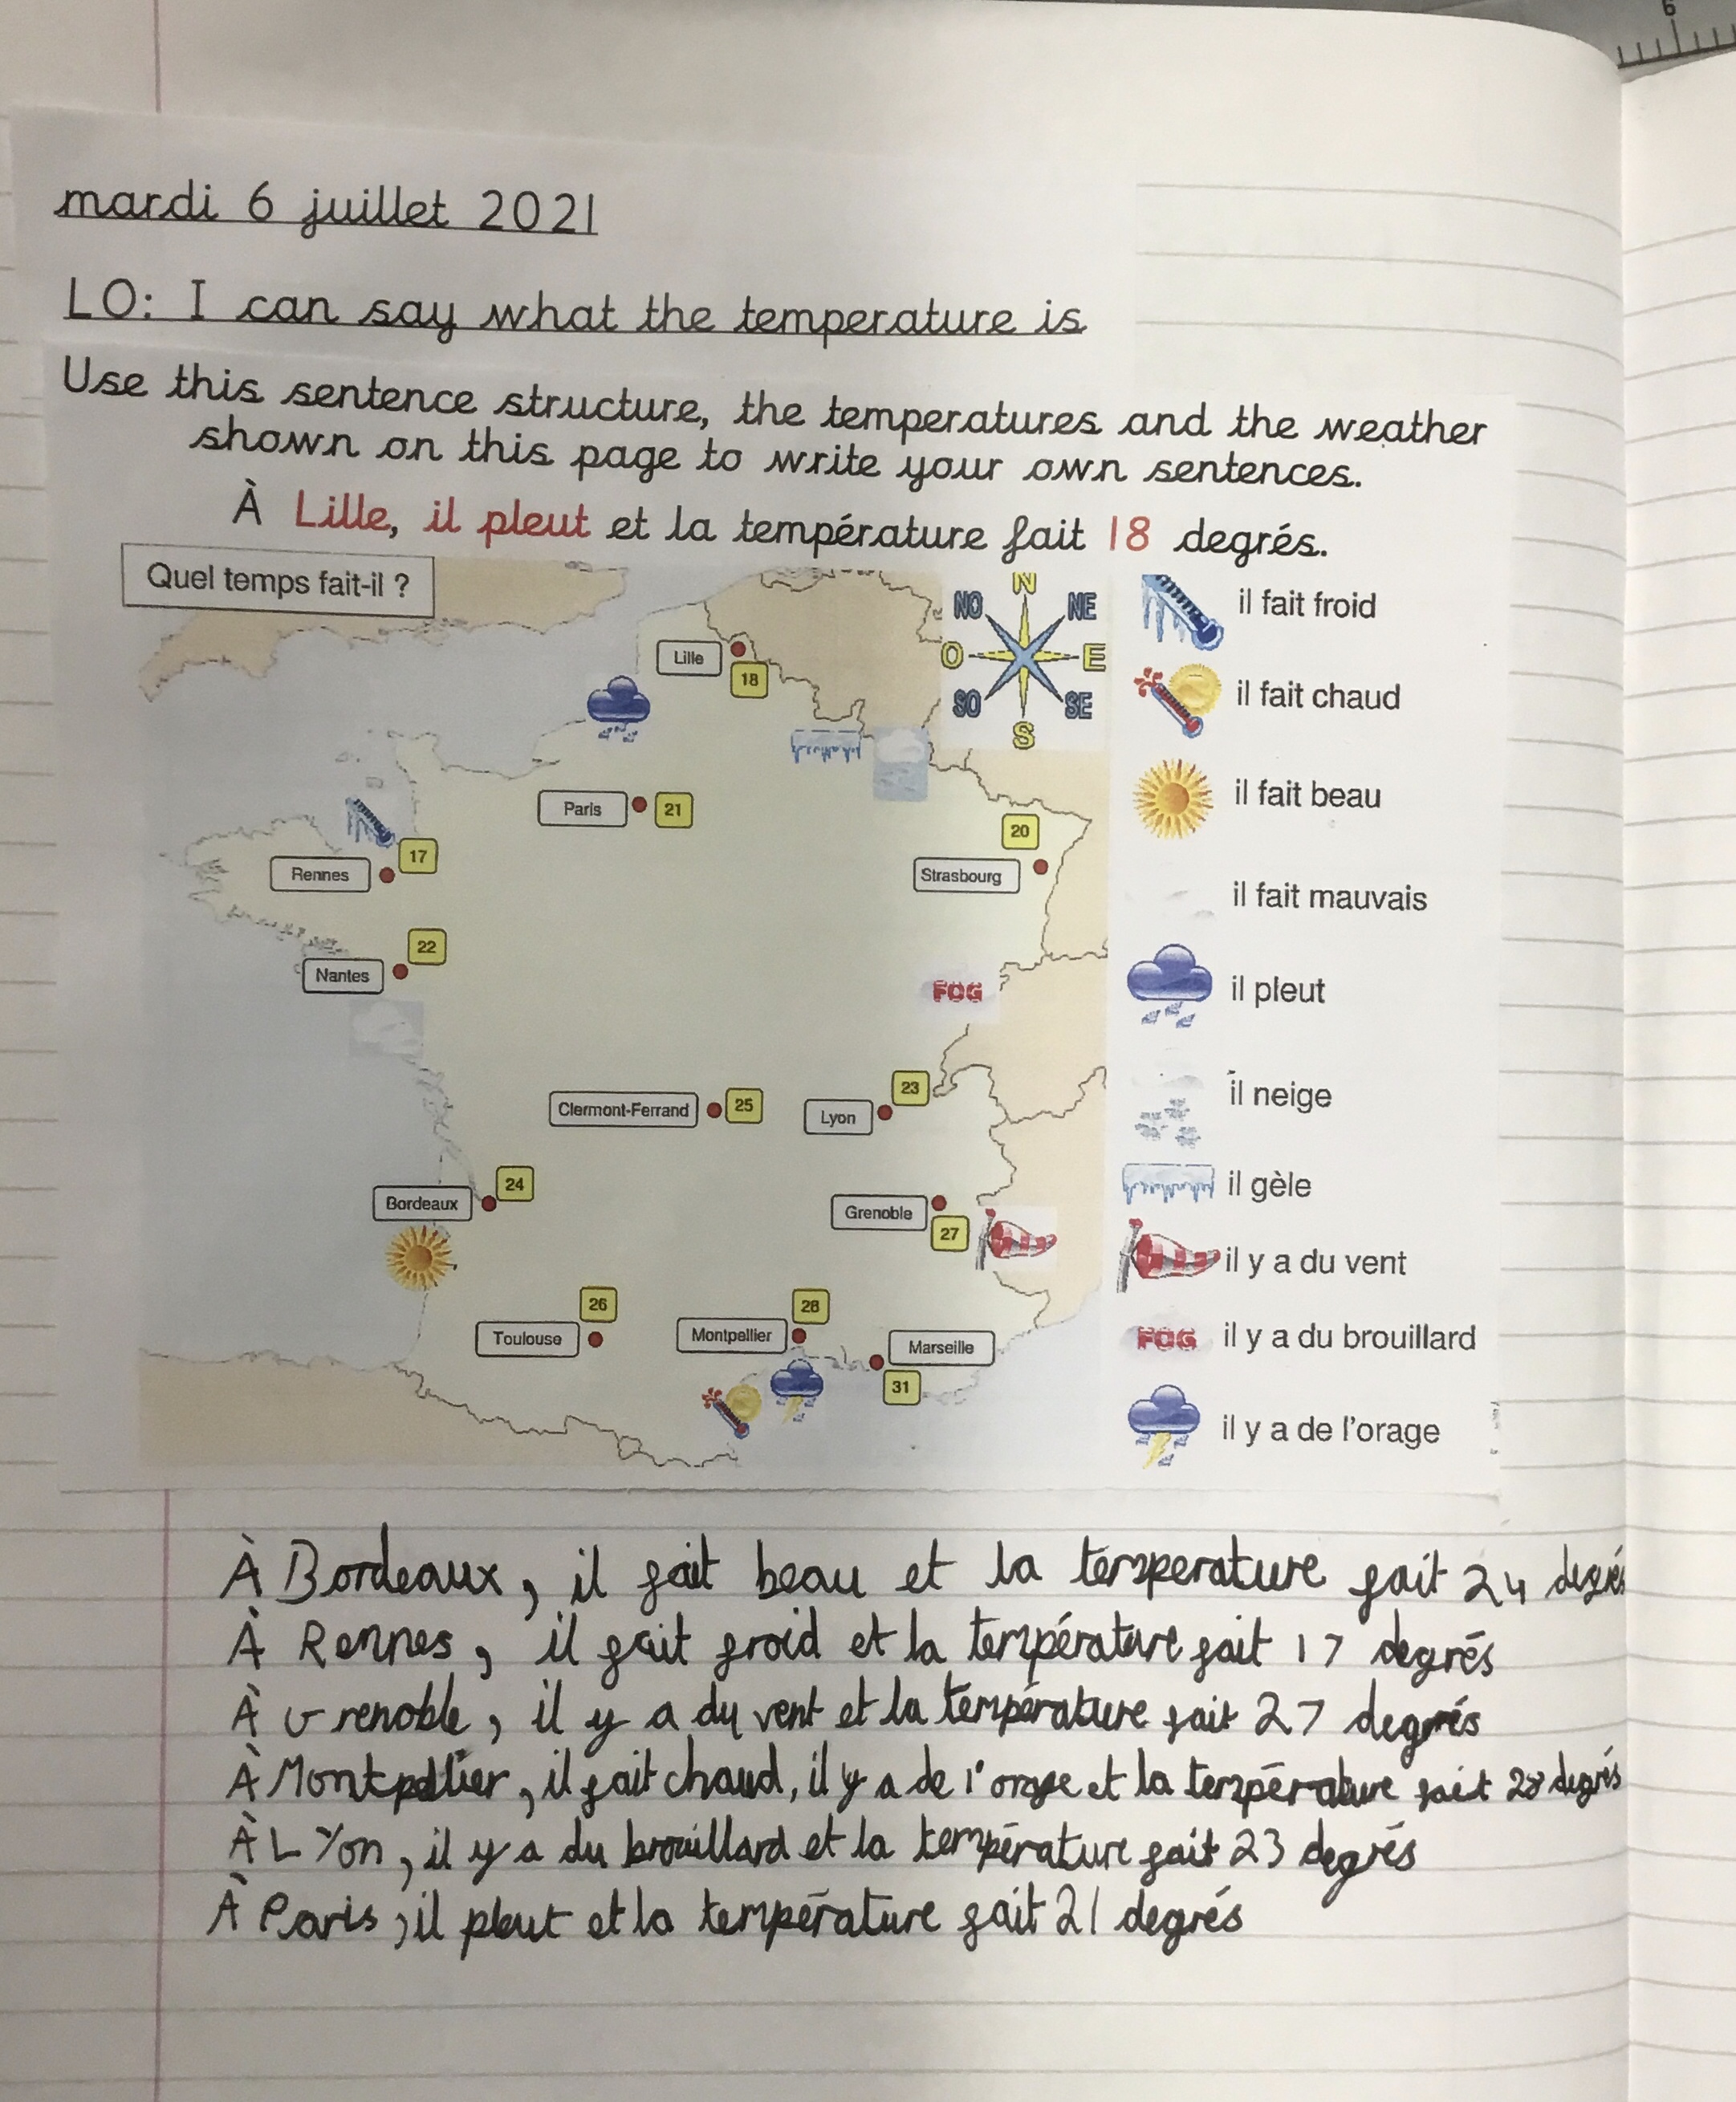 6
mardi 6 juillet 2021
LO: I can say what the temperature is
Use this sentence structure, the temperatures and the weather
shown on this page to write your own sentences.
À Lille, il pleut et la température fait 18 degrés.
Quel temps fait-il ?
N
NO NE
O E
SO SE
S
Lille
18
Paris 21
17
Rennes
20
Strasbourg
22
Nantes
FOG
Clermont-Ferrand 25
23
Lyon
24
Bordeaux
Grenoble
27
26
Toulouse
28
Montpellier
Marseille
31
il fait froid
il fait chaud
il fait beau
il fait mauvais
il pleut
il neige
il gèle
il y a du vent
FOG il y a du brouillard
il y a de l'orage
À Bordeaux, il fait beau et la temperature fait 24 degrés
À Rennes, il fait froid et la température fait 17 degrés
À Grenoble, il y a du vent et la température fait 27 degrés
À Montpellier, il fait chaud, il y a de l'orage et la température fait 28 degrés
À LYon, il y a du brouillard et la température fait 23 degrés
À Paris, il pleut et la température fait 21 degrés